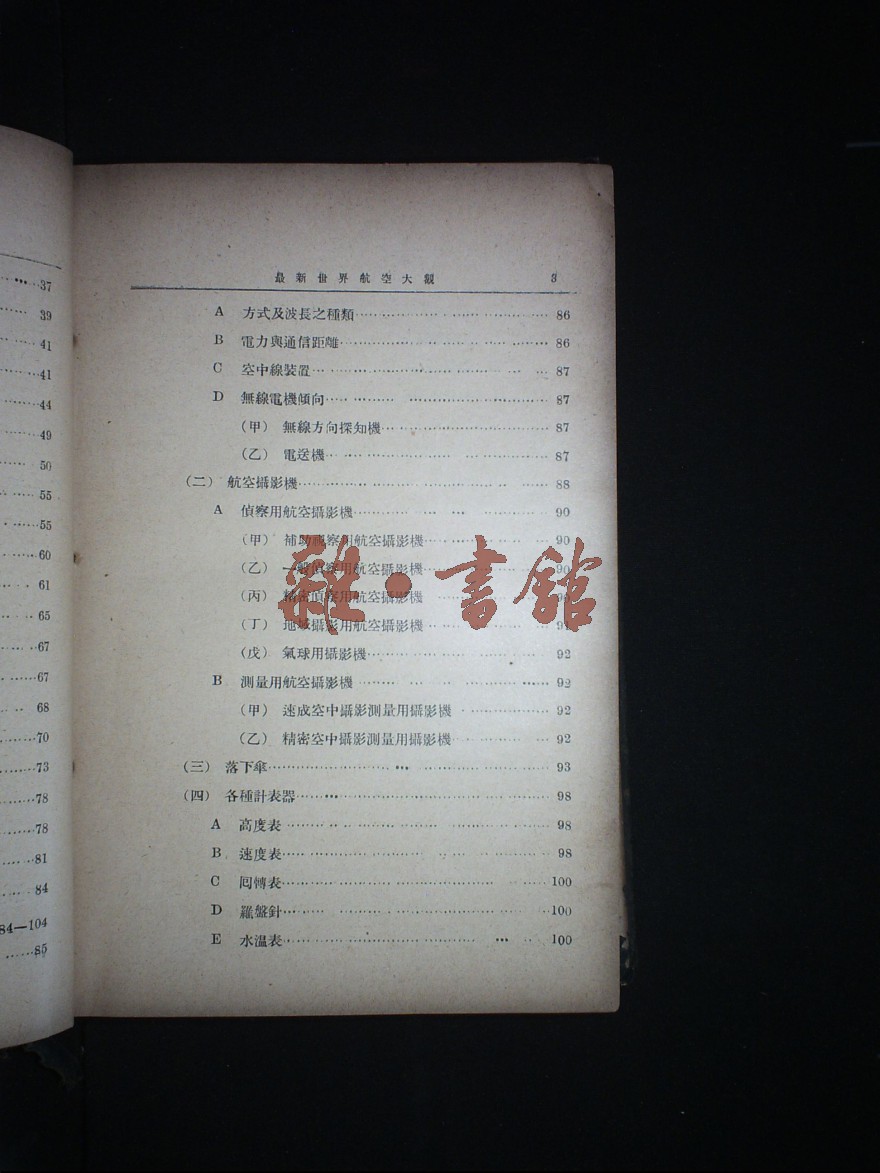 37
39
41
41
44
49
50
55
55
60
61
65
67
67
68
70
73
78
78
81
84
84—104
85
最新世界航空大觀 3
A 方式及波長之種類 86
B 電力與通信距離 86
C 空中線裝置 87
D 無線電機傾向 87
(甲) 無線方向探知機 87
(乙) 電送機 87
(二) 航空攝影機 88
A 偵察用航空攝影機 90
(甲) 補助視察用航空攝影機 90
(乙) 一般偵察用航空攝影機 90
(丙) 精密偵察用航空攝影機
(丁) 地域攝影用航空攝影機
(戊) 氣球用攝影機 92
B 測量用航空攝影機 92
(甲) 速成空中攝影測量用攝影機 92
(乙) 精密空中攝影測量用攝影機 92
(三) 落下傘 93
(四) 各種計表器 98
A 高度表 98
B 速度表 98
C 囘轉表 100
D 羅盤針 100
E 水溫表 100
雜·書館